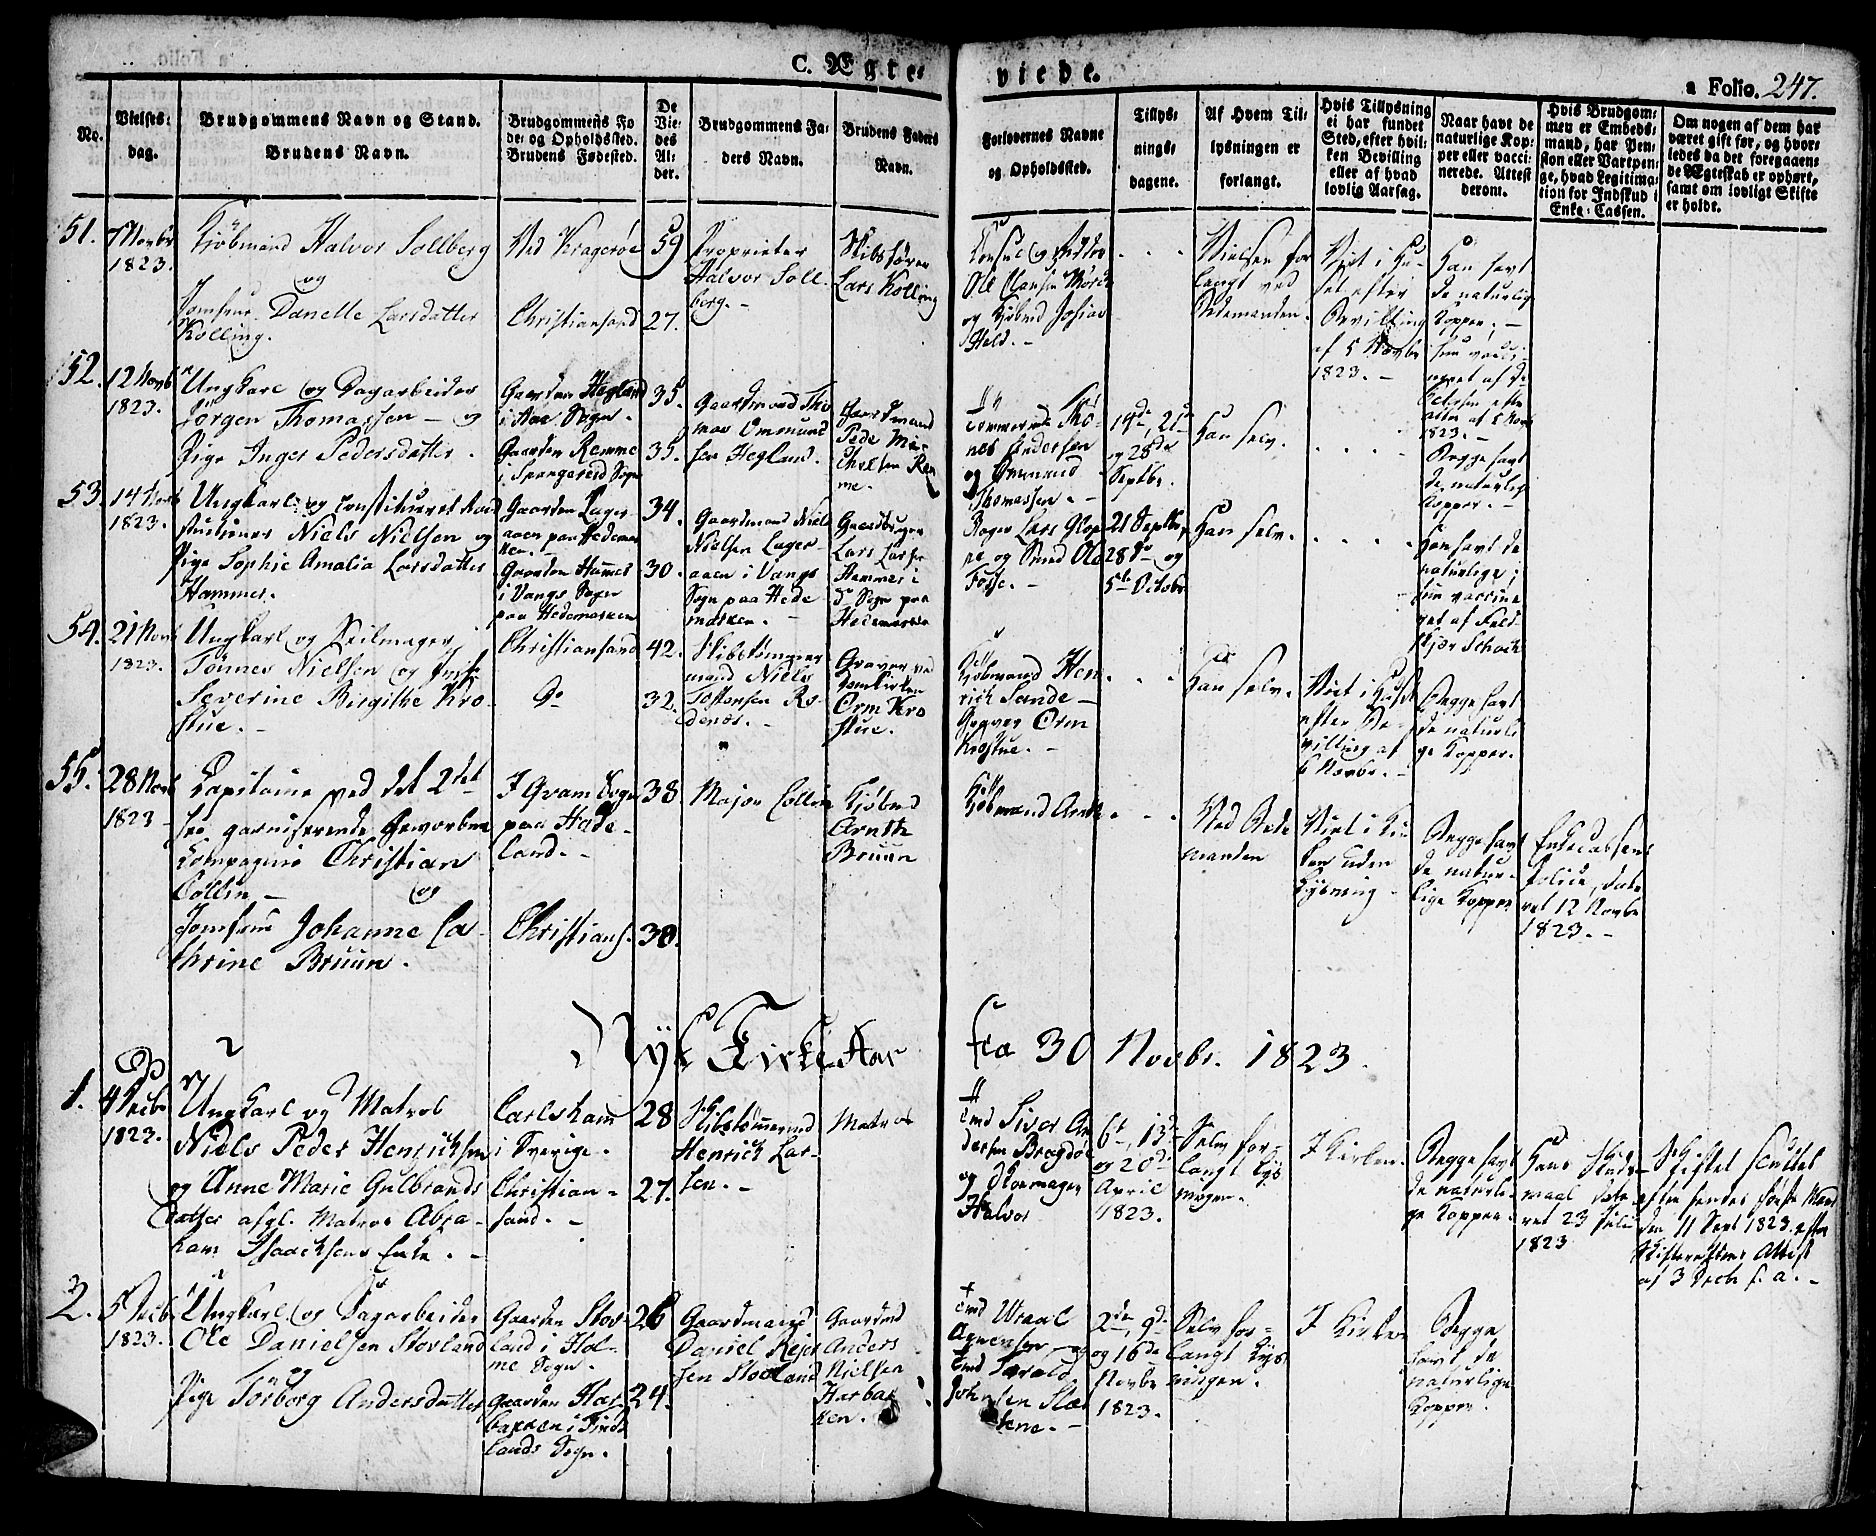 C. Ægte-
viede.
a Folio. 247.
No.
Vielses-
dag.
Brudgommens Navn og Stand.
Brudens Navn.
Brudgommens Fø
de- og Opholdssted.
Brudens Fødested.
De
Vie-
des
Al-
der.
Brudgommens Fa-
ders Navn.
Brudens Faders
Navn.
Forlovernes Navne
og Opholdssted.
Tillys-
nings-
dagene.
Af Hvem Til-
lysningen er
forlangt.
Hvis Tillysning
ei har fundet
Sted, efter hvil-
ken Bevilling
eller af hvad
lovlig Aarsag.
Naar havt de
naturlige Kop-
per eller vacci-
nerede. Attest
derom.
Hvis Brudgom-
men er Embeds-
mand, har Pen-
sion eller Vartpen-
ge, hvad Legitima-
tion for Indskud i
Enke-Cassen.
Om nogen af dem har
været gift før, og hvor-
ledes da det foregaaen-
de Ægteskab er ophørt,
samt om lovligt Skifte
er holdt.
51.
7 Novbr
1823.
Kjöbmand Halvor Sollberg
og
Jomfrue Danelle Larsdatter
Kolling.
Ved Kragerøe
Christiansand
59
27.
Proprietær
Halvor Soll-
berg.
Skibsfører
Lars Kolling
Consul og
Ole Clausen Mörch
og Kjöbmd Josias
Held.
Vielsen for
langt ved
Bedemanden.
Viet i Hu-
set efter
Bevilling
af 5 Novbr
1823.
Han havt
de naturlig
Kopper,
hun vacci-
neret af
1823.
52.
12 Novb
1823.
Ungkarl og Dagarbeider
Jörgen Thomassen og
Pige Inger Pedersdatter.
Gaarden Hegland
i Sogn.
Gaarden Remme
i Spangereid Sogn
35.
35.
Gaardmand Tho
mas Omund
sen Hegland.
Gaardmand
Peder Mi-
chelsen Rem
me.
Tömmermd Tho-
mas Andersen
og Ommund
Thomassen.
14de, 21de
og 28de
Septbr.
Han selv.
Begge havt
de naturlige
Kopper.
53.
14 Novb
1823.
Ungkarl og constitueret
Niels Nielsen og
Pige Sophie Amalia Larsdatter
Hammer.
Gaarden Lager-
aaen paa Hedemar
ken.
Gaarden Hammer
i Vangs Sogn
paa Hedemarken
34.
30.
Gaardmand Niels
Nielsen Lager-
aaen i Vangs
Sogn paa Hede
marken.
Gaardbruger
Lars Larsen
Hammer i
do Sogn paa
Hedemarken
Bager Lars
og Smed Ole
Fosse.
21 Septbr,
28de og
5te Octobr
Han selv.
Han havt de
naturlige;
hun vaccine
ret af Feld
skjær Schock
54.
21 Novb
1823.
Ungkarl og Seilmager
Tönnes Nielsen og Jomfr
Severine Birgithe Kro-
stue.
Christiansand
do
42.
32.
Skibstömmer
mand Niels
Tostensen Ro-
denes.
Graver ved
Domkirken
Orm Kro
stue.
Kjöbmand Hen
rich Sande
Graver Orm
Krostue.
Han selv.
Viet i Huset
efter Be-
villing af
6 Novbr.
Begge havt
de naturli
ge Kopper.
55.
28 Novb
1823
Capitaine ved det 2det
her garniserende Gevorbne
Kompagnie Christian
Collin
og
Jomfrue Johanne Ca-
thrine Bruun.
I Gram Sogn
paa Hade-
land.
Christians.
38
30.
Major Collin
Kjöbmd
Arnth
Bruun
Kjöbmand Arnth
Ved Bede
manden
Viet i Kir
ken uden
Lysning
Begge havt
de natur-
lige Kopper
Enkecassens
Police, date
ret 12 Novbr
1823.
Nyt Kirke Aar
fra 30 Novbr. 1823.
1.
4 Decbr
1823.
Ungkarl og Matros
Niels Peder Henrichsen
og Anne Marie Gulbrands
datter afgl. Matros Abra-
ham Isaachsens Enke.
Carlshamn
i Sverige.
Christian-
sand.
28
27.
Skibstömmermd
Henrich Lar-
sen.
Matros
Tmd Siver An
dersen Bragdöe
og Skomager
Halvor
6te, 13de
og 20de
April
1823.
Selv for-
langt Lys
ningen.
I Kirken.
Begge havt
de naturli-
ge Kopper.
Hans Skuds-
maal date
ret 23
1823
Skiftet sluttet
efter hendes første Mand
den 11 Sept 1823 efter
Skifterettens Attest
af 3 Decbr s. a.
2.
5 Decbr
1823.
Ungkarl og Dagarbeider
Ole Danielsen Stovland
og
Pige Törborg Andersdatter
Gaarden Stov-
land i Hol-
me Sogn.
Gaarden Har-
bakken i Find
lands Sogn.
26
24.
Gaardmand
Daniel Reier
sen Stovland
Gaardmd
Anders
Nielsen
Harbak
ken.
Tmd
og
Tmd Harald
Johnsen
2den, 9de
og 16de
Novbr
1823.
Selv for-
langt Lys
ningen.
I Kirken
Begge
havt de
naturlige
Kopper.